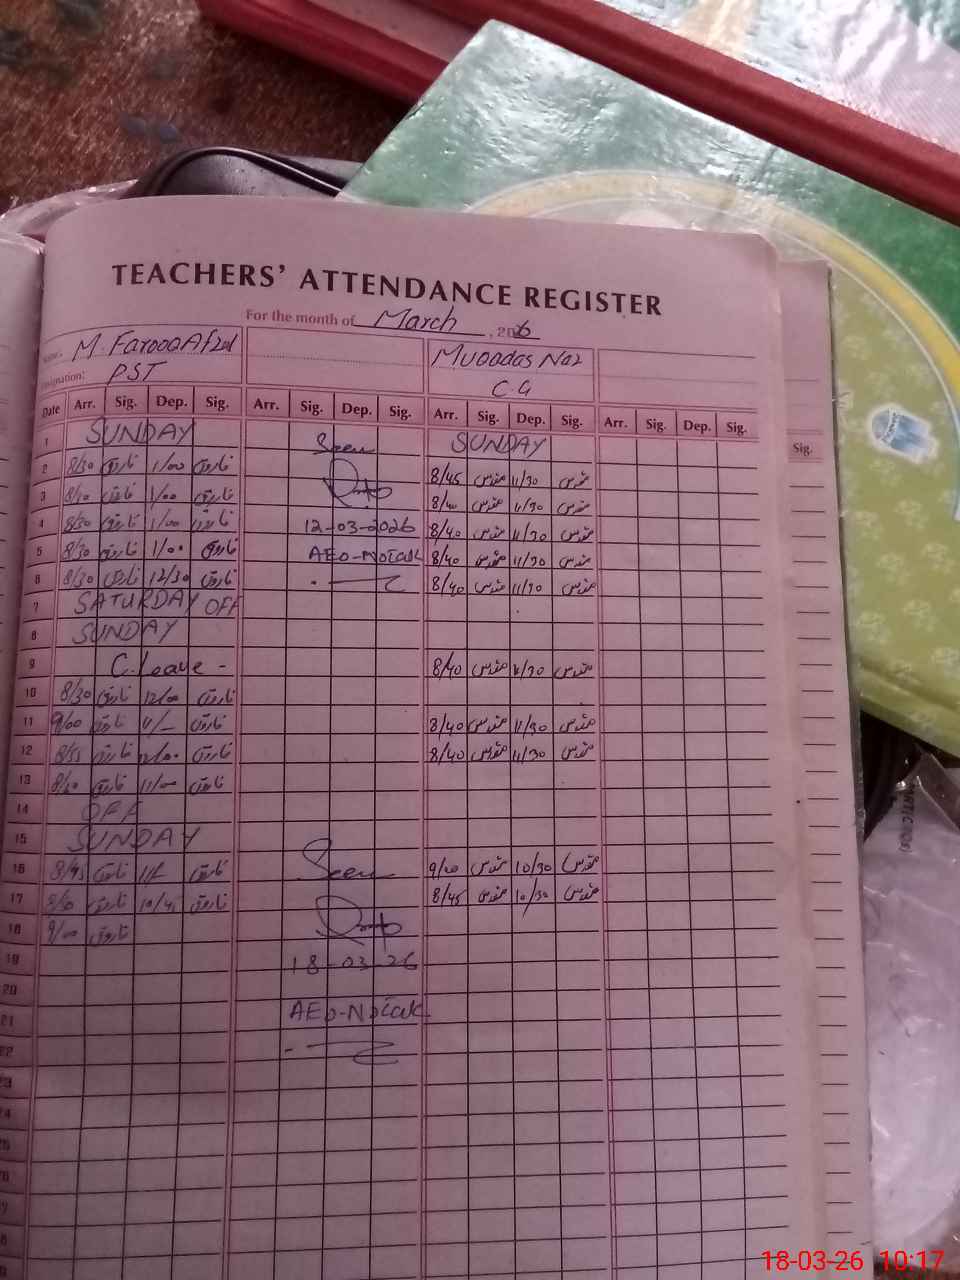 TEACHERS' ATTENDANCE REGISTER
For the month of March, 2026
Name: M. Farooq Afzal Muqadas Naz
Designation: PST C G
Date Arr. Sig. Dep. Sig. Arr. Sig. Dep. Sig. Arr. Sig. Dep. Sig. Arr. Sig. Dep. Sig. Sig.
1 SUNDAY Seen SUNDAY
2 8/30 فاروق 1/00 فاروق 8/45 مقدس 11/30 مقدس
3 8/30 فاروق 1/00 فاروق 8/40 مقدس 11/30 مقدس
4 8/30 فاروق 1/00 فاروق 12-03-2026 8/40 مقدس 11/30 مقدس
5 8/30 فاروق 1/00 فاروق AEO- 8/40 مقدس 11/30 مقدس
6 8/30 فاروق 12/30 فاروق 8/40 مقدس 11/30 مقدس
7 SATURDAY OFF
8 SUNDAY
9 C. Leave - 8/40 مقدس 11/30 مقدس
10 8/30 فاروق 12/00 فاروق
11 9/00 فاروق 11/- فاروق 8/40 مقدس 11/30 مقدس
12 8/55 فاروق 12/00 فاروق 8/40 مقدس 11/30 مقدس
13 فاروق 11/00 فاروق
14 OFF
15 SUNDAY
16 8/45 فاروق 11/- فاروق Seen 9/00 مقدس 10/30 مقدس
17 فاروق 10/45 فاروق 8/45 مقدس 10/30 مقدس
18 9/00 فاروق
19 18-03-26
20
21 AEO-
22
23
24
25
26
27
28
18-03-26 10:17